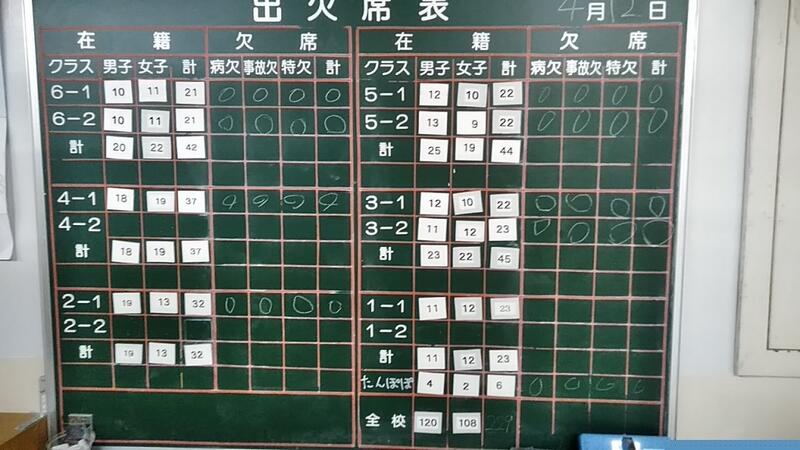 出欠席表 4月12日
在籍 欠席
クラス 男子 女子 計 病欠 事故欠 特欠 計
6-1 10 11 21 0 0 0 0
6-2 10 11 21 0 0 0 0
計 20 22 42
4-1 18 19 37 0 0 0 0
4-2
計 18 19 37
2-1 19 13 32 0 0 0 0
2-2
計 19 13 32
在籍 欠席
クラス 男子 女子 計 病欠 事故欠 特欠 計
5-1 12 10 22 0 0 0 0
5-2 13 9 22 0 0 0 0
計 25 19 44
3-1 12 10 22 0 0 0 0
3-2 11 12 23 0 0 0 0
計 23 22 45
1-1 11 12 23
1-2
計 11 12 23
たんぽぽ 4 2 6 0 0 0 0
全校 120 108